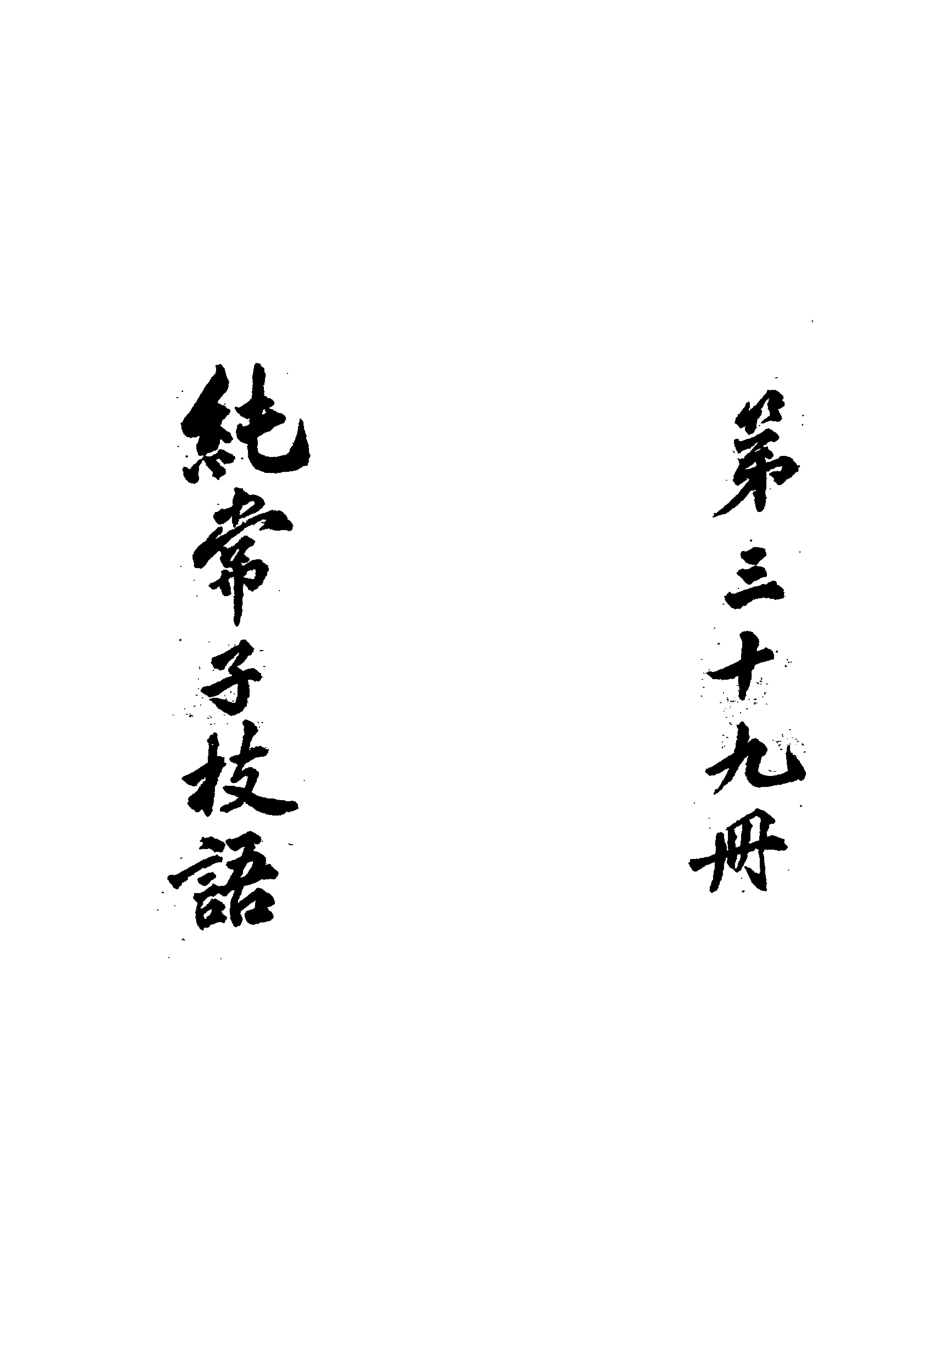 第三十九冊
純常子枝語